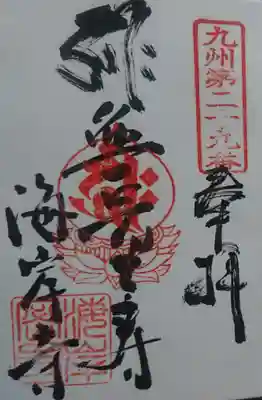 九州第二十九番
奉拝
無量寿
海岸寺